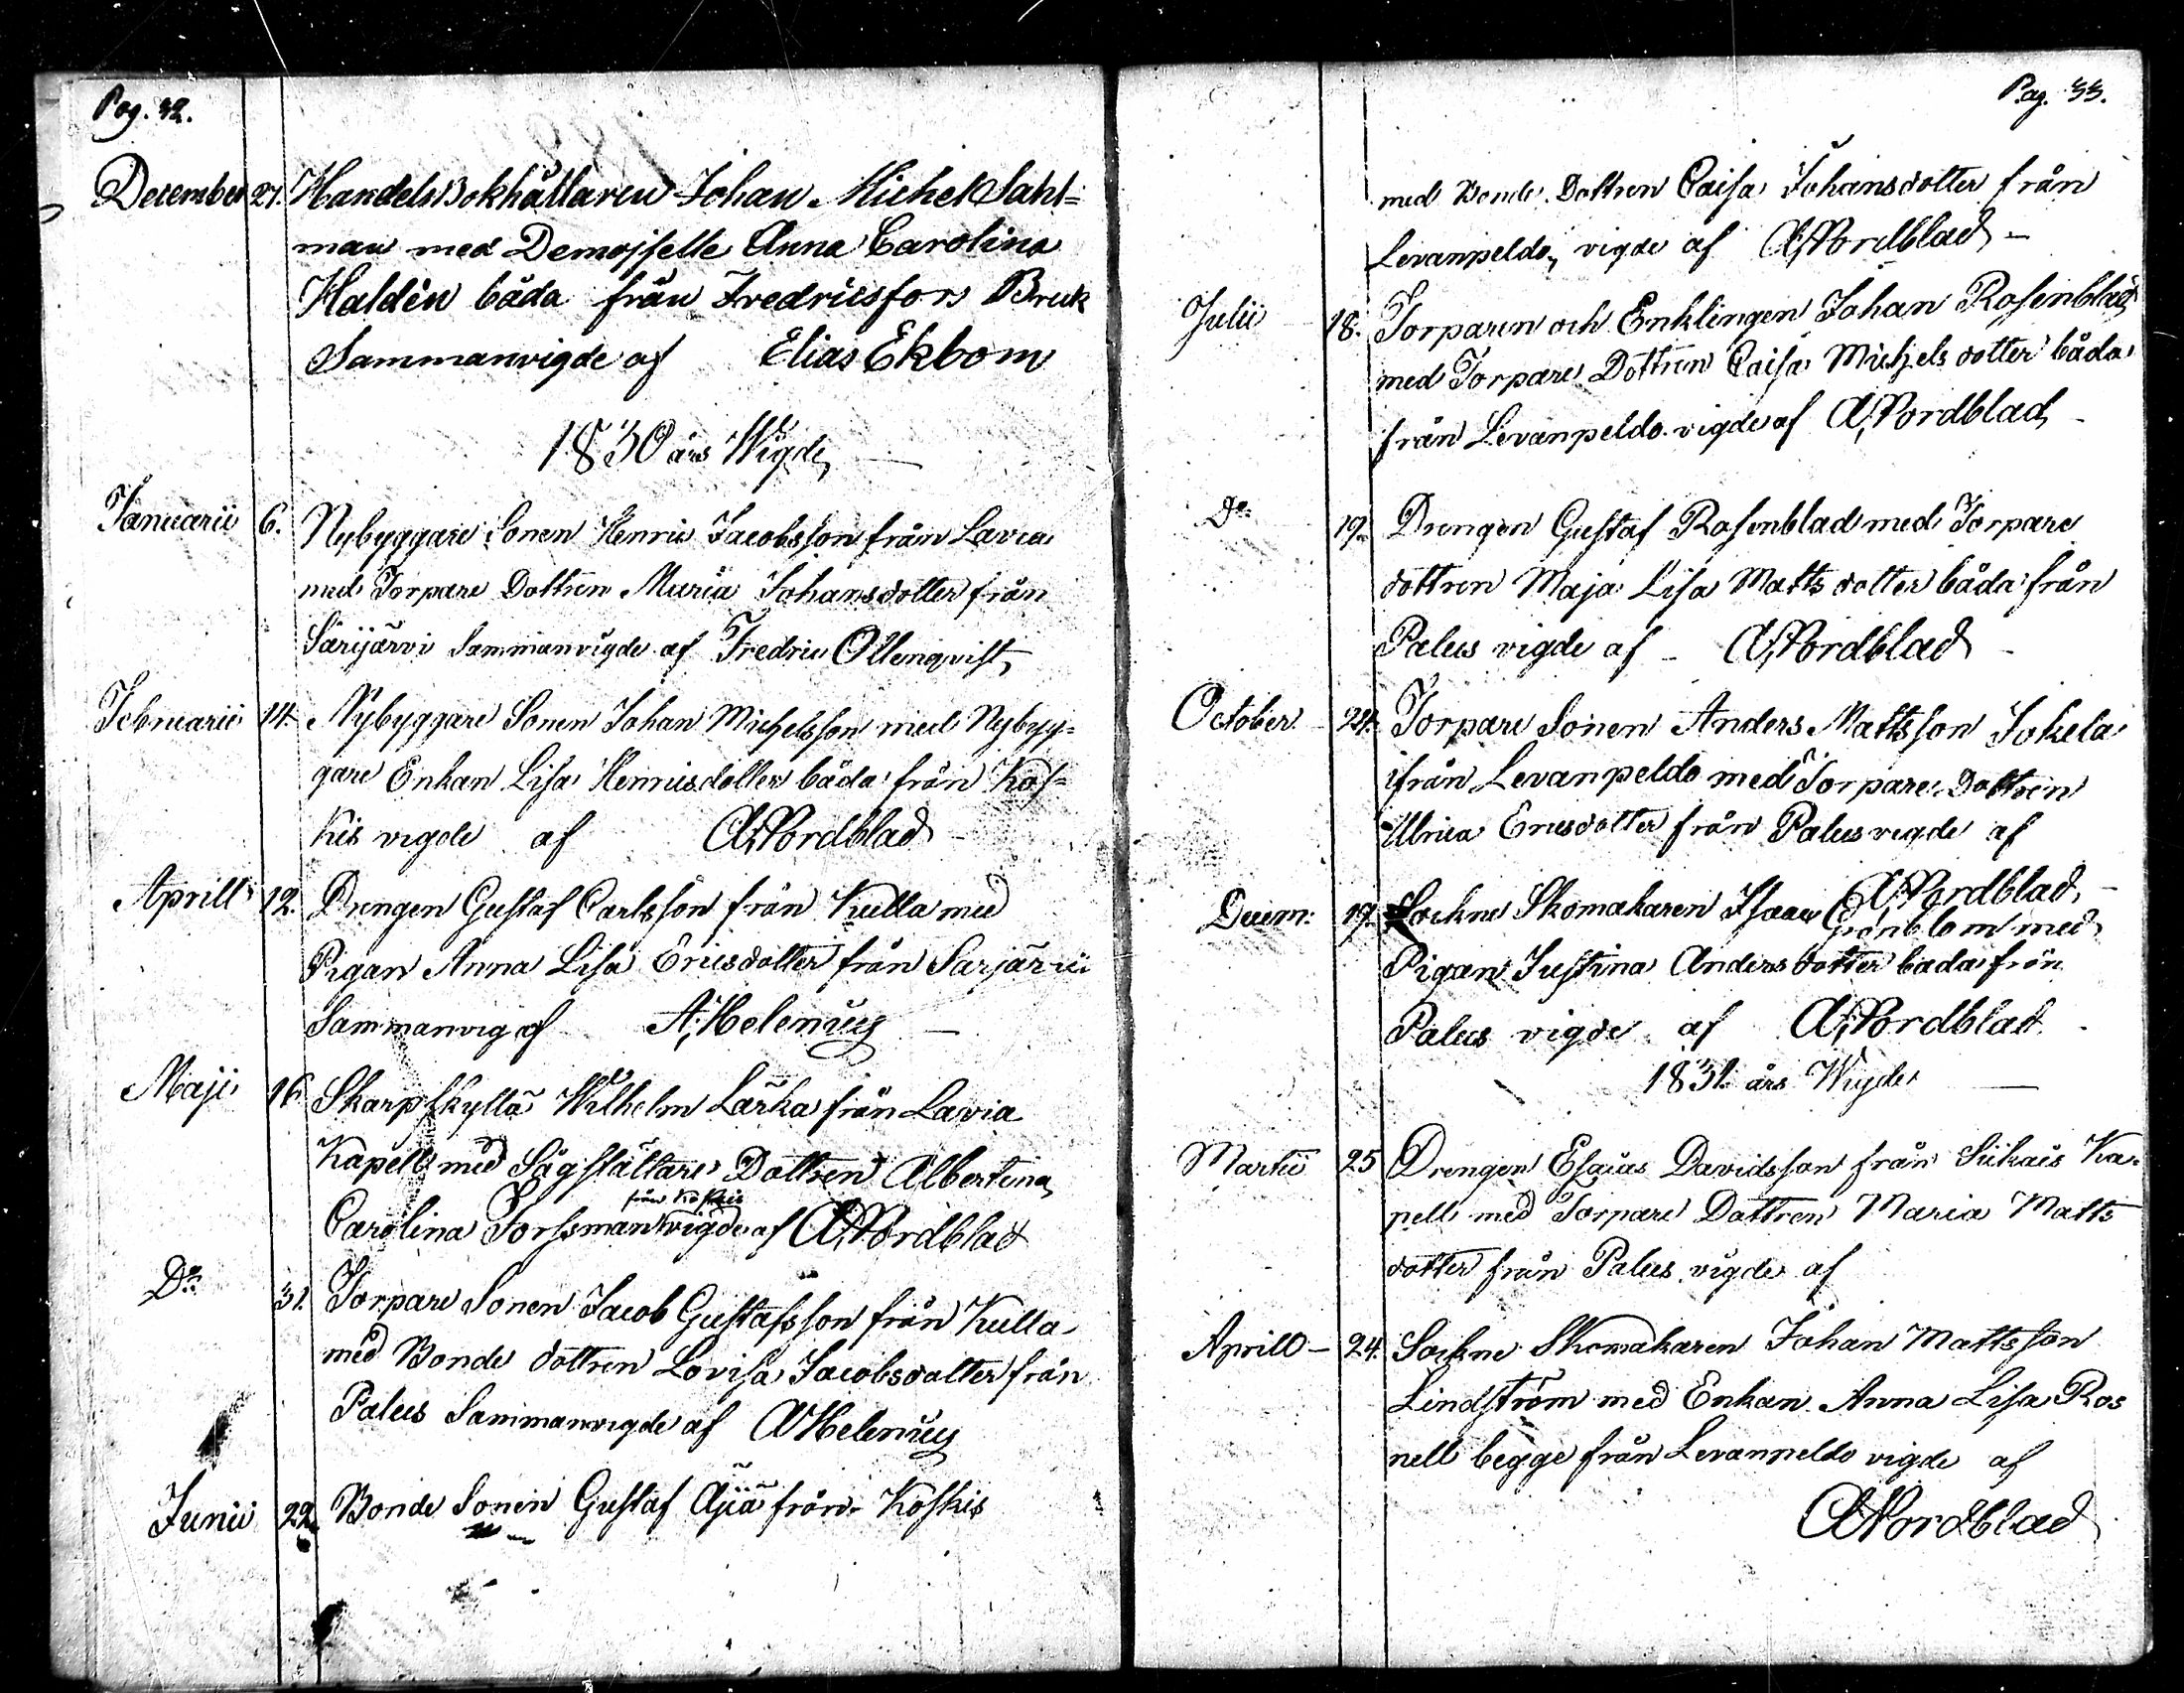 Pag. 32.
December 27. Handels Bokhållaren Johan Michel Dahl=
man med Demoiselle Anna Carolina
Haldèn båda från Fredricsfors Bruk
Sammanvigde af Elias Ekbom
1830 års Wigde
Januarii 6. Nybyggare Sonen Henric Jacobsson från Lavia
med Torpare Dottren Maria Johansdotter från
Särijärvi Sammanvigde af Fredric Ollenqvist
Februarii 14. Nybyggare Sonen Johan Michelsson med Nybyg=
gare Enkan Lisa Henricsdotter båda från Kos=
kis vigde af A. Nordblad
Aprill 12. Drengen Gustaf Carlsson från Kulla med
Pigan Anna Lisa Ericsdotter från Sarjärvi
Sammanvig af A. Helenius
Maji 16 Skarpskyttä Wilhelm Lärka från Lavia
Kapell med Sågställare Dottren Albertina
från Koskis
Carolina Forssman vigde af A. Nordblad
Do 31. Torpare Sonen Jacob Gustafsson från Kulla
med Bonde dottren Lovisa Jacobsdotter från
Palus Sammanvigde af A Helenius
Junii 22. Bonde Sonen Gustaf Äjiä från Koskis
Pag. 33.
med Bonde Dottren Caisa Johansdotter från
Levanpeldo, vigde af A. Nordblad
Julii 18. Torparen och Enklingen Johan Rosenblad
med Torpare Dottren Caisa Michelsdotter båda
från Levanpeldo vigde af A. Nordblad
Do 19. Drengen Gustaf Rosenblad med Torpare
dottren Maja Lisa Matts dotter båda från
Palus vigde af A. Nordblad
October 24. Torpare Sonen Anders Mattsson Jokela
ifrån Levanpeldo med Torpare Dottren
Ulrica Ericsdotter från Palus vigde af
A. Nordblad
Decem: 19. Sockne Skomakaren Isaac Grönblom med
Pigan Justina Andersdotter bada från
Palus vigde af A. Nordblad
1831 års Wigde
Martii 25 Drengen Esaias Davidsson från Siikais Ka=
pell med Torpare Dottren Maria Matts
dotter från Palus vigde af
Aprill 24. Sockne Skomakaren Johan Mattsson
Lindström med Enkan Anna Lisa Ros
nell begge från Levanpeldo vigde af
A Nordblad